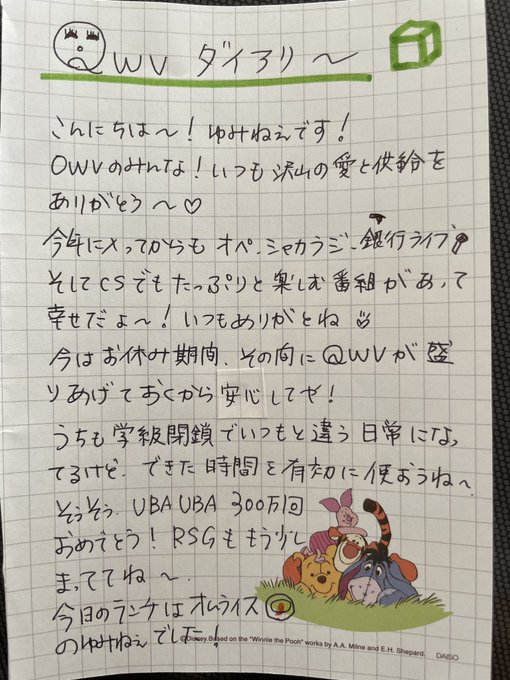 QWV ダイアリ〜
こんにちは〜！ゆみねぇです！
OWVのみんな！いつも沢山の愛と供給を
ありがとう〜♡
今年に入ってからもオペ、シャカラジ、銀行ライブ
そしてCSでもたっぷりと楽しむ番組があって
幸せだょ〜！いつもありがとね
今はお休み期間、その間にQWVが盛
りあげておくから安心してや！
うちも学級閉鎖でいつもと違う日常になっ
てるけど、できた時間を有効に使おうね〜
そうそう、UBA UBA 300万回
おめでとう！RSGももう少し
まっててね〜
今日のランチはオムライス
のゆみねぇでした！
©Disney.Based on the "Winnie the Pooh" works by A.A. Milne and E.H. Shepard.
DAISO